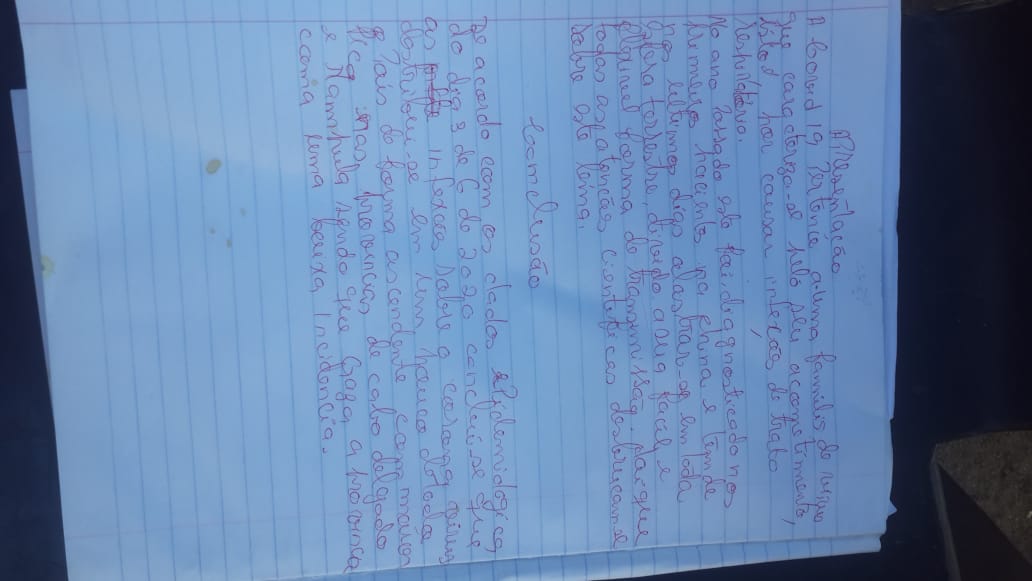 Apresentação
A Covid 19 Pertence a uma familis de virus
que caracteriza-se pelo seu acometimento,
isto é, por causar infeções do trato
respiratório.
No ano Passado este foi, diagnosticado nos
primeiros paciente na china e tem de
nos ultimos dias alastrar-se em toda
esfera terrestre, divido a sua facil e
forma de transmissão, dai que
todas as atenções cientificas desbruçam-se
sobre este tema.
Comclusão
De acordo ccom os dados epidemidlogica,
do dia 3 de 6 de 2020 conclui-se que
as infexcões sobre o corona virus
destribou-se em um pouco de todo
o Pais de forma ascendente com maior
fica nas provincias de cabo delgado
e Nampula sendo que Gaza a provinca
ccoma uma beixa Incidencia.